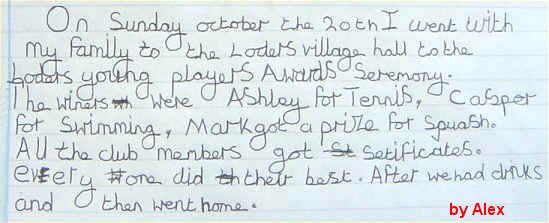 On Sunday october the 20th I went with
my family to the Loders village hall to the
Loders young players Awards Seremony.
The winers were Ashley for Tennis, Casper
for Swimming, Mark got a prize for Squash.
All the club members got setificates.
every one did their best. After we had drinks
and then went home.
by Alex